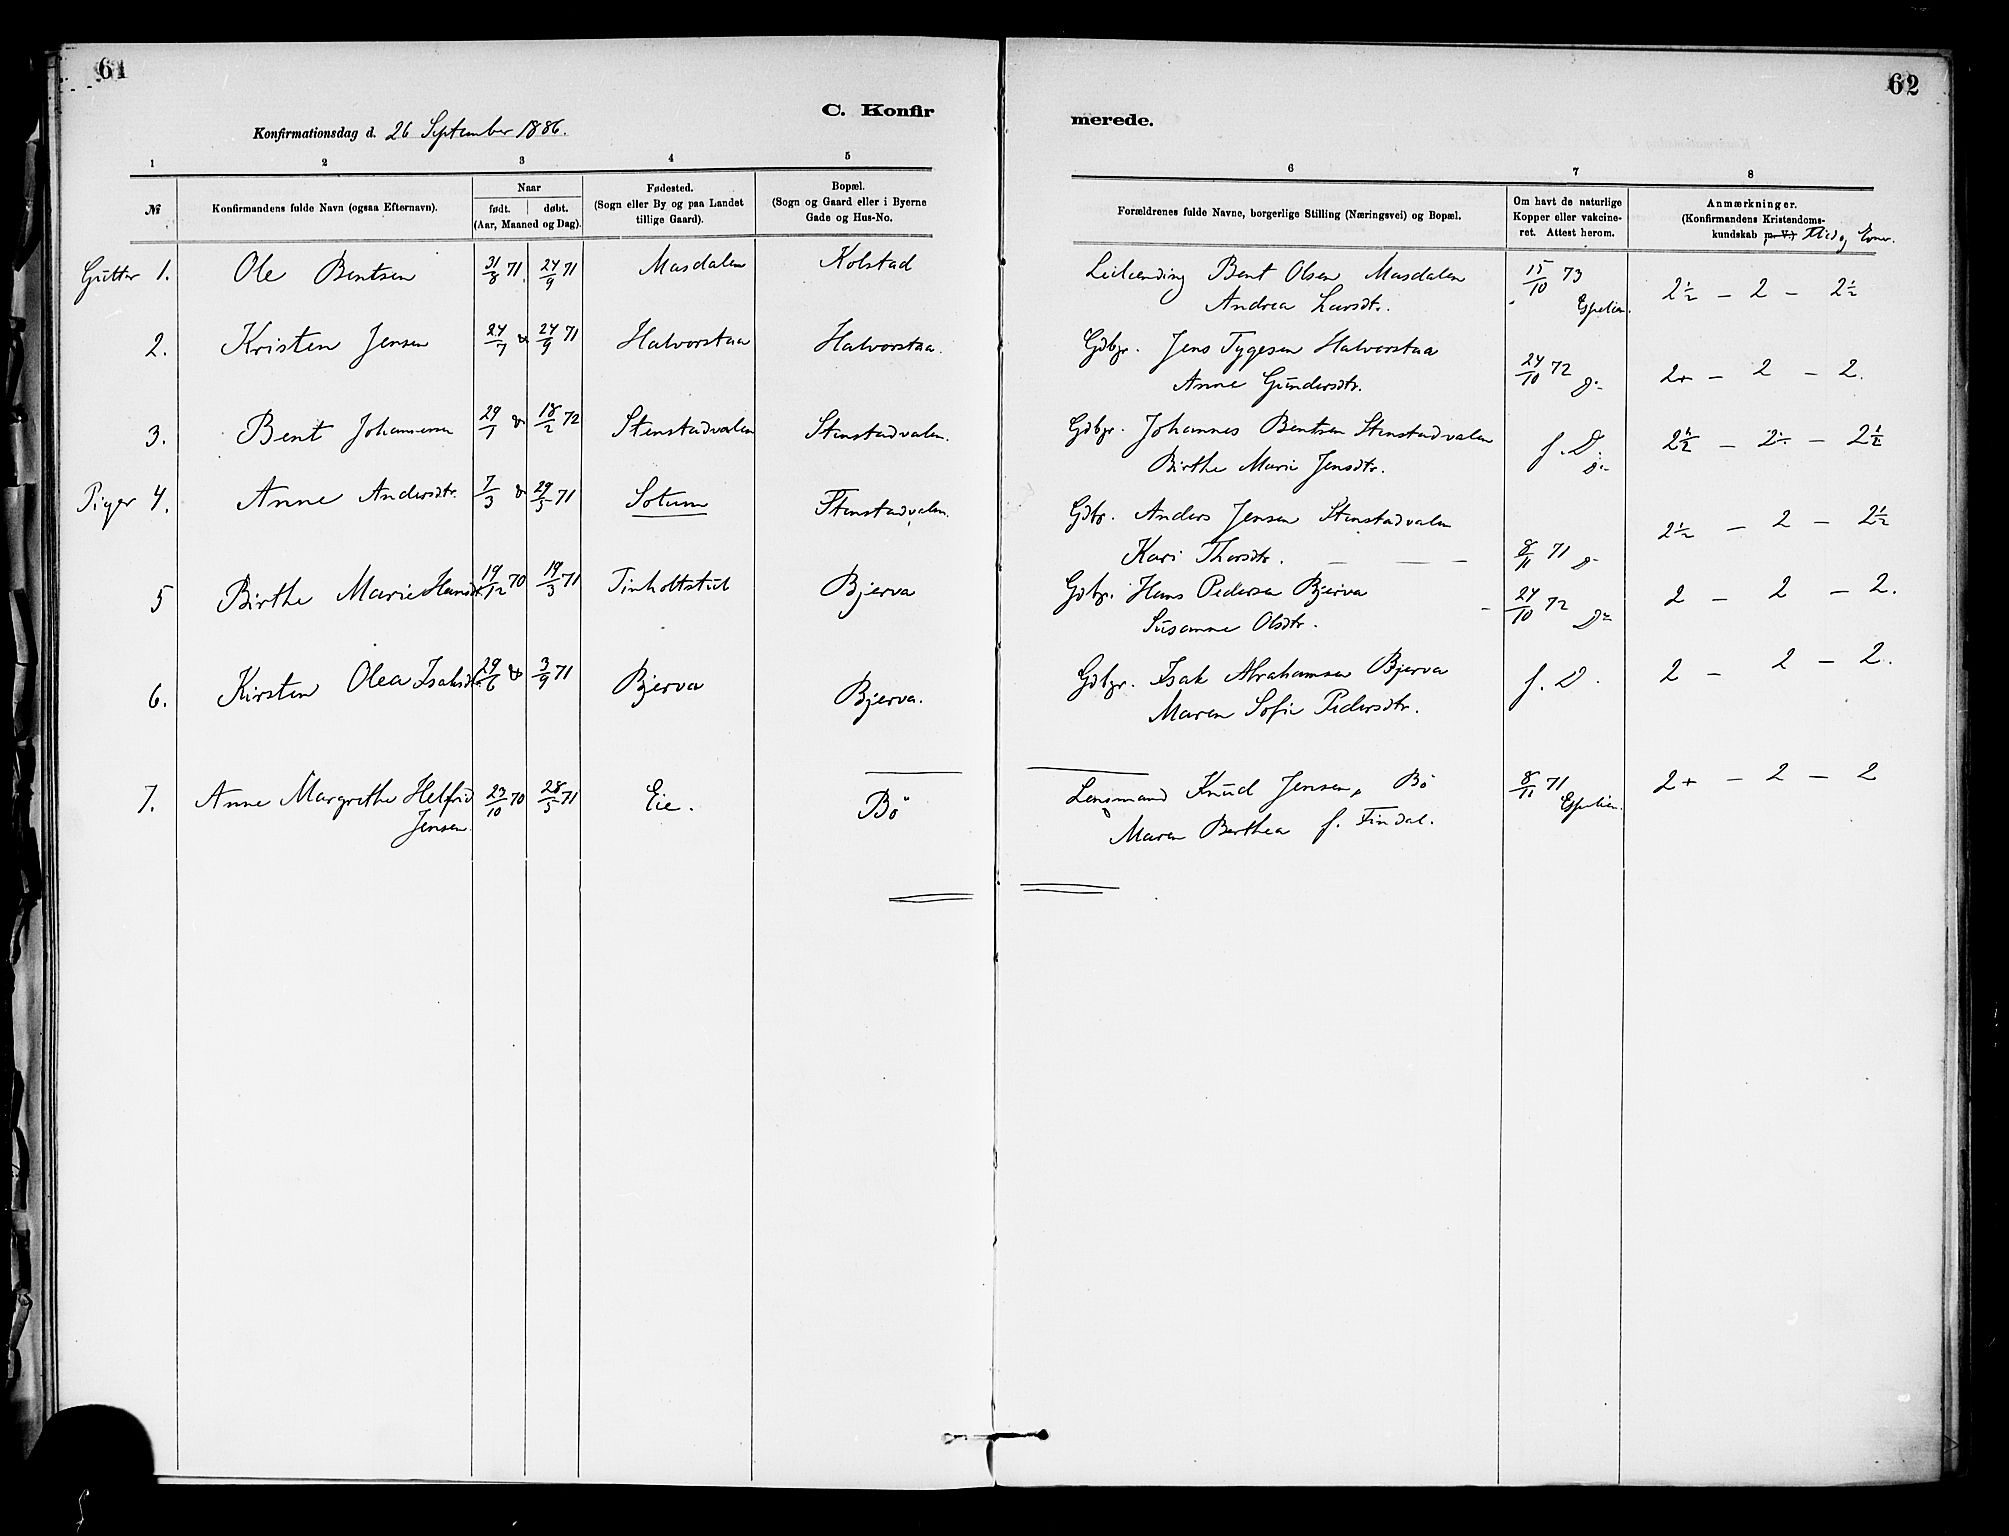 61
62
C. Konfir
merede.
Konfirmationsdag d. 26 September 1886.
1 2 3 4 5 6 7 8
№
Konfirmandens fulde Navn (ogsaa Efternavn).
Naar
født. døbt.
(Aar, Maaned og Dag).
Fødested.
(Sogn eller By og paa Landet
tillige Gaard).
Bopæl.
(Sogn og Gaard eller i Byerne
Gade og Hus-No.
Forældrenes fulde Navne, borgerlige Stilling (Næringsvei) og Bopæl.
Om havt de naturlige
Kopper eller vakcine-
ret. Attest herom.
Anmærkninger.
(Konfirmandens Kristendoms-
kundskab m. V.) Flid og Evner.
Gutter 1. Ole Bentsen 31/8 71. 24/9 71 Masdalen Kolstad Leilending Bent Olsen Masdalen 15/10 73 2½ – 2 – 2½
Andrea Larsdtr. Espelien.
2. Kristen Jensen 24/7 24/9 71 Halvorstaa Halvorstaa. Gdbgr. Jens Tygesen Halvorstaa 24/10 72 2+ – 2 – 2.
Anne Gundersdtr.
3. Bent Johannesen 29/7 18/2 72 Stenstadvalen Stenstadvalen. Gdbgr. Johannes Bentsen Stenstadvalen f. D. 2½ – 2 – 2½
Birthe Marie Jensdtr.
Piger 4. Anne Andersdtr. 7/3 29/5 71 Solum Stenstadvalen. Gdbr. Anders Jensen Stenstadvalen 2½ – 2 – 2½
Kari Thorsdtr. — — — 8/11 71
5 Birthe Marie Hansdtr. 19/12 70 19/3 71 Tinholtstul Bjerva Gdbgr. Hans Pedersen Bjerva 24/10 72 2 – 2 – 2.
Susanne Olsdtr.
6. Kirsten Olea Isaksdtr. 29/6 3/9 71 Bjerva Bjerva. Gdbgr. Isak Abrahamsen Bjerva f. D. 2 – 2 – 2.
Maren Sofie Pedersdtr.
7. Anne Margrethe Helfrid 23/10 70 28/5 71 Eie. Bö Lensmand Knud Jensen, Bö 8/11 71 2+ – 2 – 2
Jensen. Maren Berthea f. Findal. Espelien.